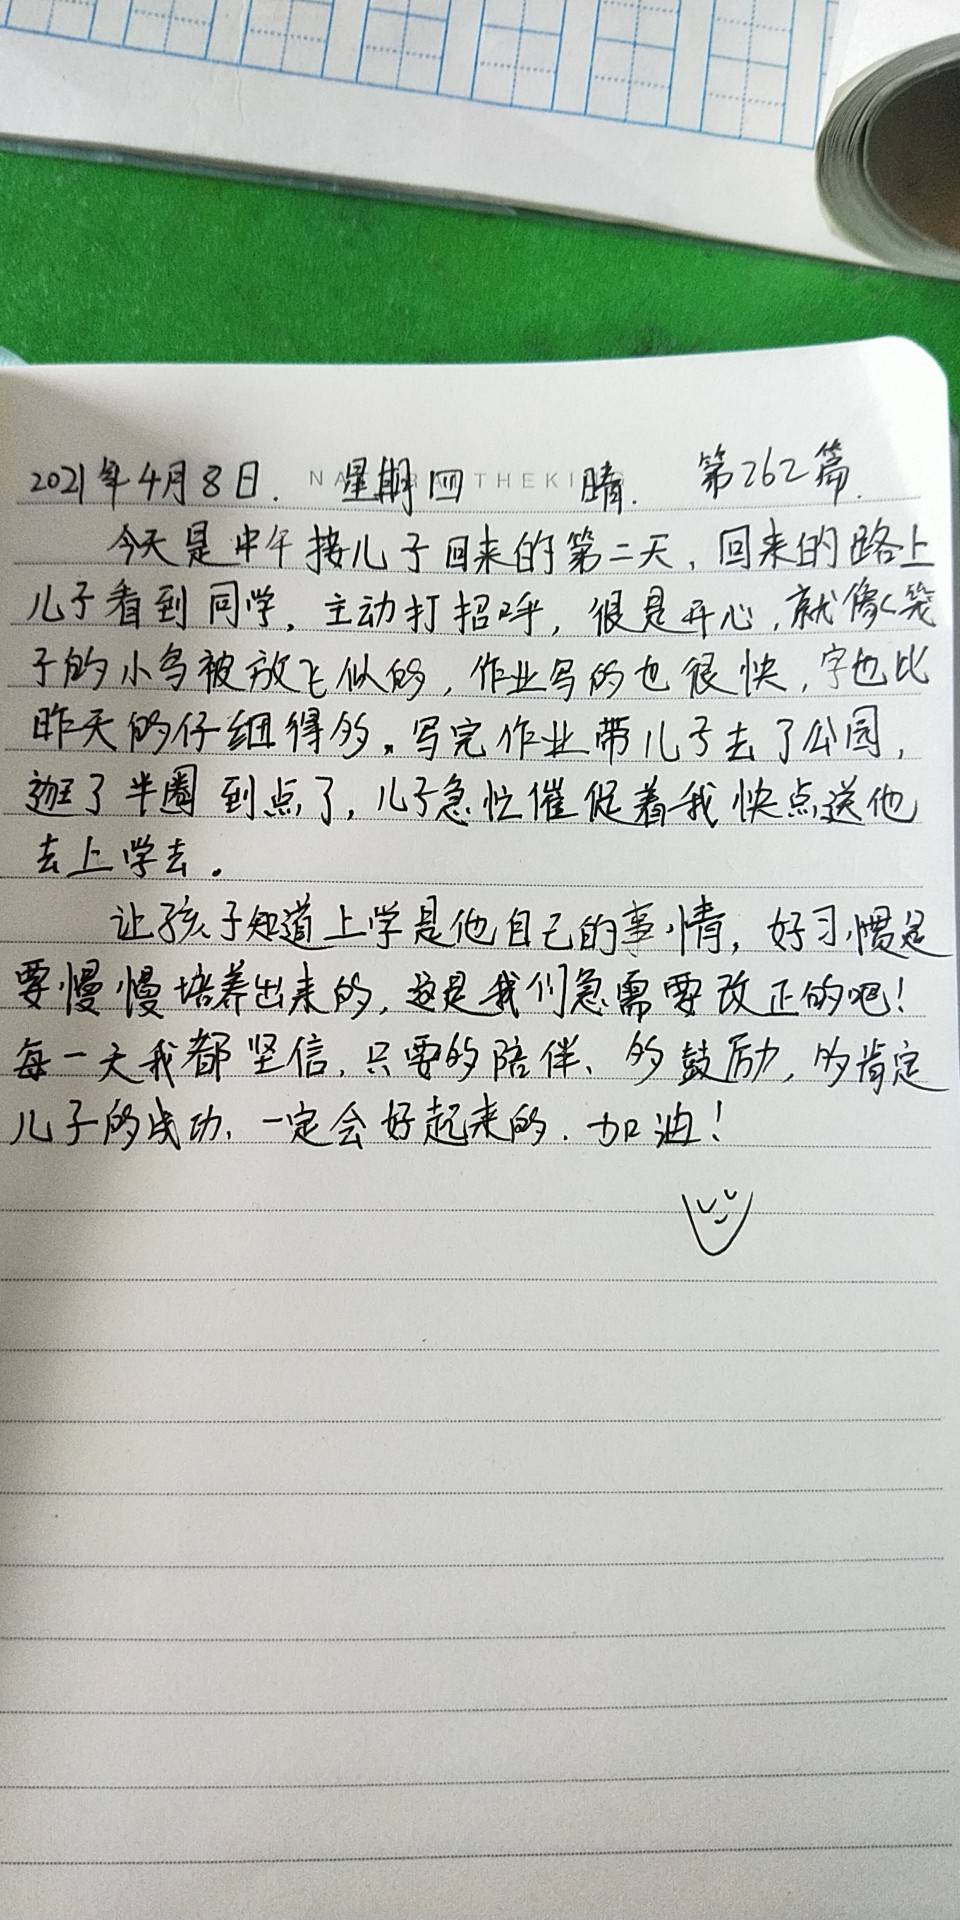 2021年4月8日. 星期四 晴. 第262篇.
今天是中午接儿子回来的第二天,回来的路上
儿子看到同学,主动打招呼,很是开心,就像笼
子的小鸟被放飞似的,作业写的也很快,字也比
昨天的仔细得多。写完作业带儿子去了公园,
逛了半圈到点了,儿子急忙催促着我快点送他
去上学去。
让孩子知道上学是他自己的事情,好习惯是
要慢慢培养出来的,这是我们急需要改正的吧!
每一天我都坚信,只要多陪伴、多鼓励,多肯定
儿子的成功、一定会好起来的.加油!